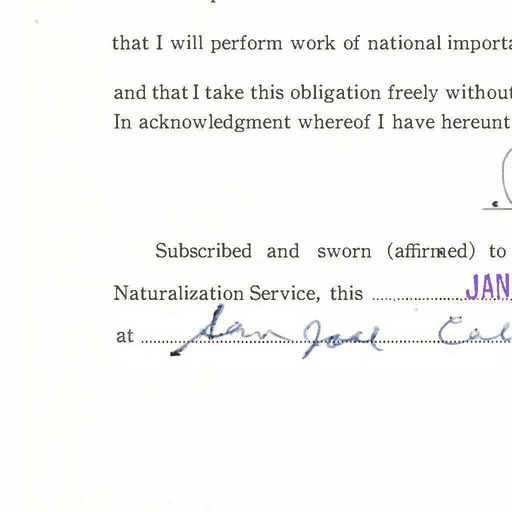 that I will perform work of national importa
and that I take this obligation freely without
In acknowledgment whereof I have hereunt
Subscribed and sworn (affirmed) to
Naturalization Service, this JAN
at San Jose Cal